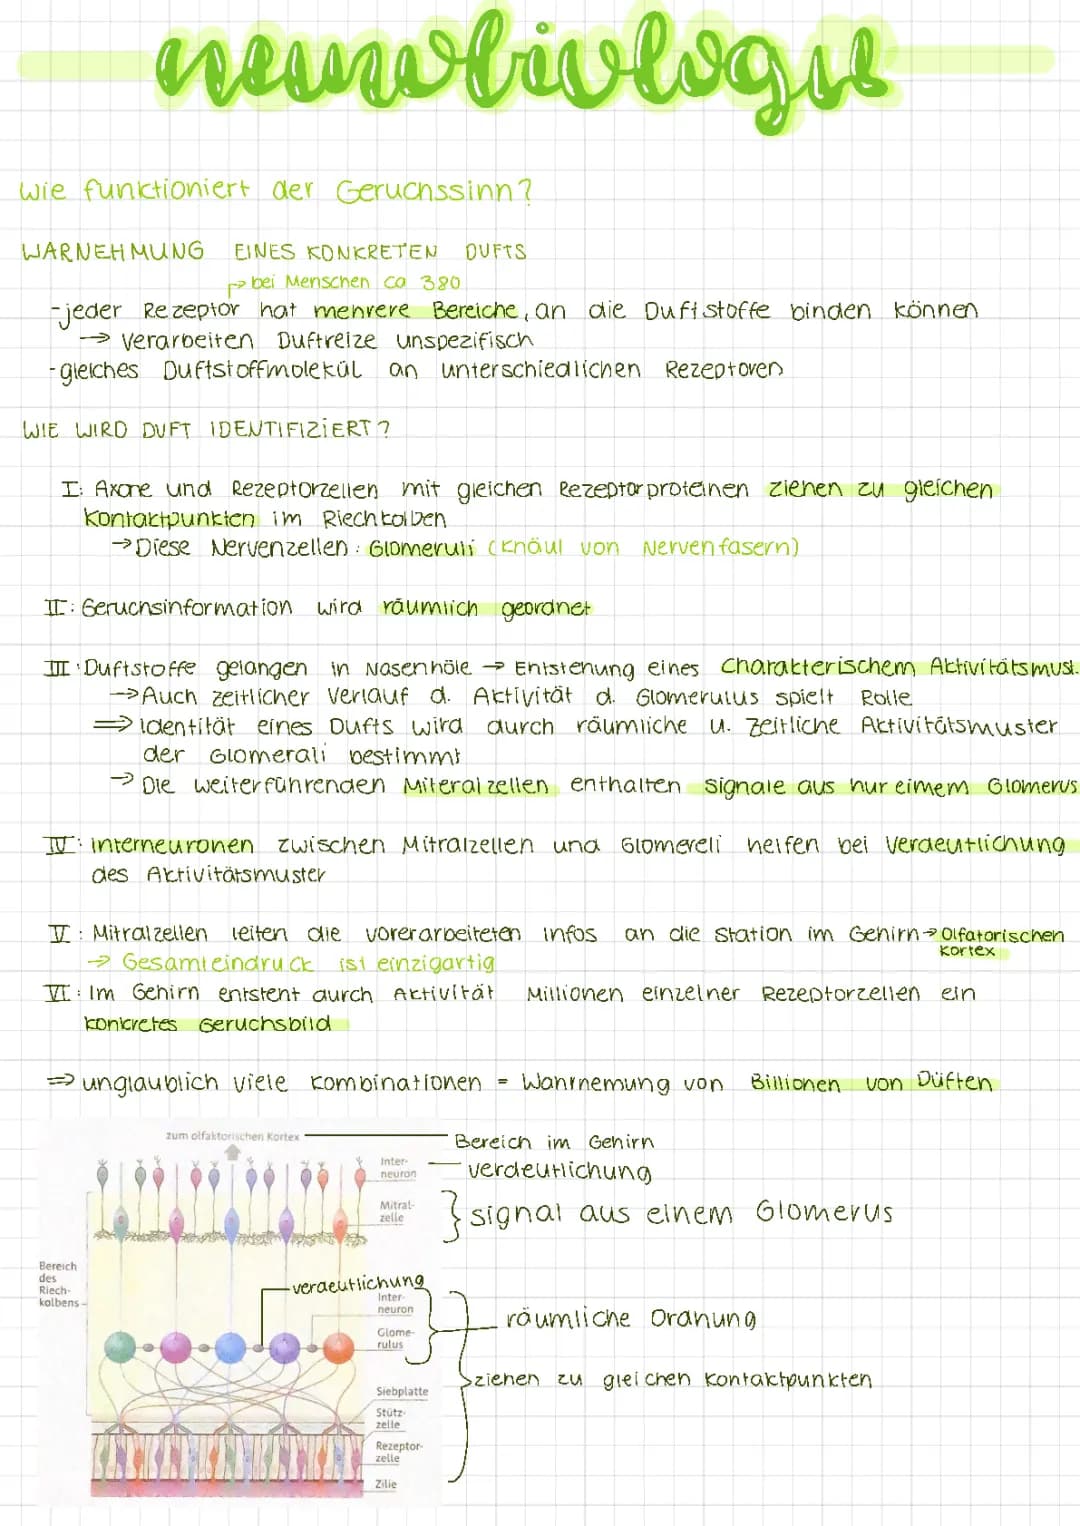 neurobiologie
wie funktioniert der Geruchssinn?
WARNEHMUNG EINES KONKRETEN DUFTS
→ bei Menschen ca 380
-jeder Rezeptor hat mehrere Bereiche, an die Duftstoffe binden können
→ verarbeiten Duftreize unspezifisch
-gleiches Duftstoffmolekül an unterschiedlichen Rezeptoren
WIE WIRD DUFT IDENTIFIZIERT?
I: Axone und Rezeptorzellen mit gleichen Rezeptorproteinen ziehen zu gleichen
Kontaktpunkten im Riechkolben
→ Diese Nervenzellen: Glomeruli (Knäul von Nervenfasern)
II: Geruchsinformation wird räumlich geordnet
III: Duftstoffe gelangen in Nasenhöle → Entstehung eines Charakterischem Aktivitätsmust.
→ Auch zeitlicher Verlauf d. Aktivität d. Glomerulus spielt Rolle
⇒ Identität eines Dufts wird durch räumliche u. zeitliche Aktivitätsmuster
der Glomerali bestimmt
→ Die weiterführenden Miteralzellen enthalten signale aus nur eimem Glomerus
IV: interneuronen zwischen Mitralzellen und Glomereli helfen bei Verdeutlichung
des Aktivitätsmuster
V: Mitralzellen leiten die vorerarbeiteten infos an die station im Gehirn → Olfatorischen
Kortex
→ Gesamteindruck ist einzigartig
VI: Im Gehirn entsteht durch Aktivität Millionen einzelner Rezeptorzellen ein
konkretes Geruchsbild
⇒ unglaublich viele Kombinationen = Wahrnemung von Billionen von Düften
zum olfaktorischen Kortex
Bereich im Gehirn
Inter-
neuron
verdeutlichung
Mitral-
zelle
signal aus einem Glomerus
Bereich
des
Riech-
kolbens
verdeutlichung
Inter-
neuron
Glome-
rulus
räumliche Ordnung
ziehen zu gleichen Kontaktpunkten
Siebplatte
Stütz-
zelle
Rezeptor-
zelle
Zilie